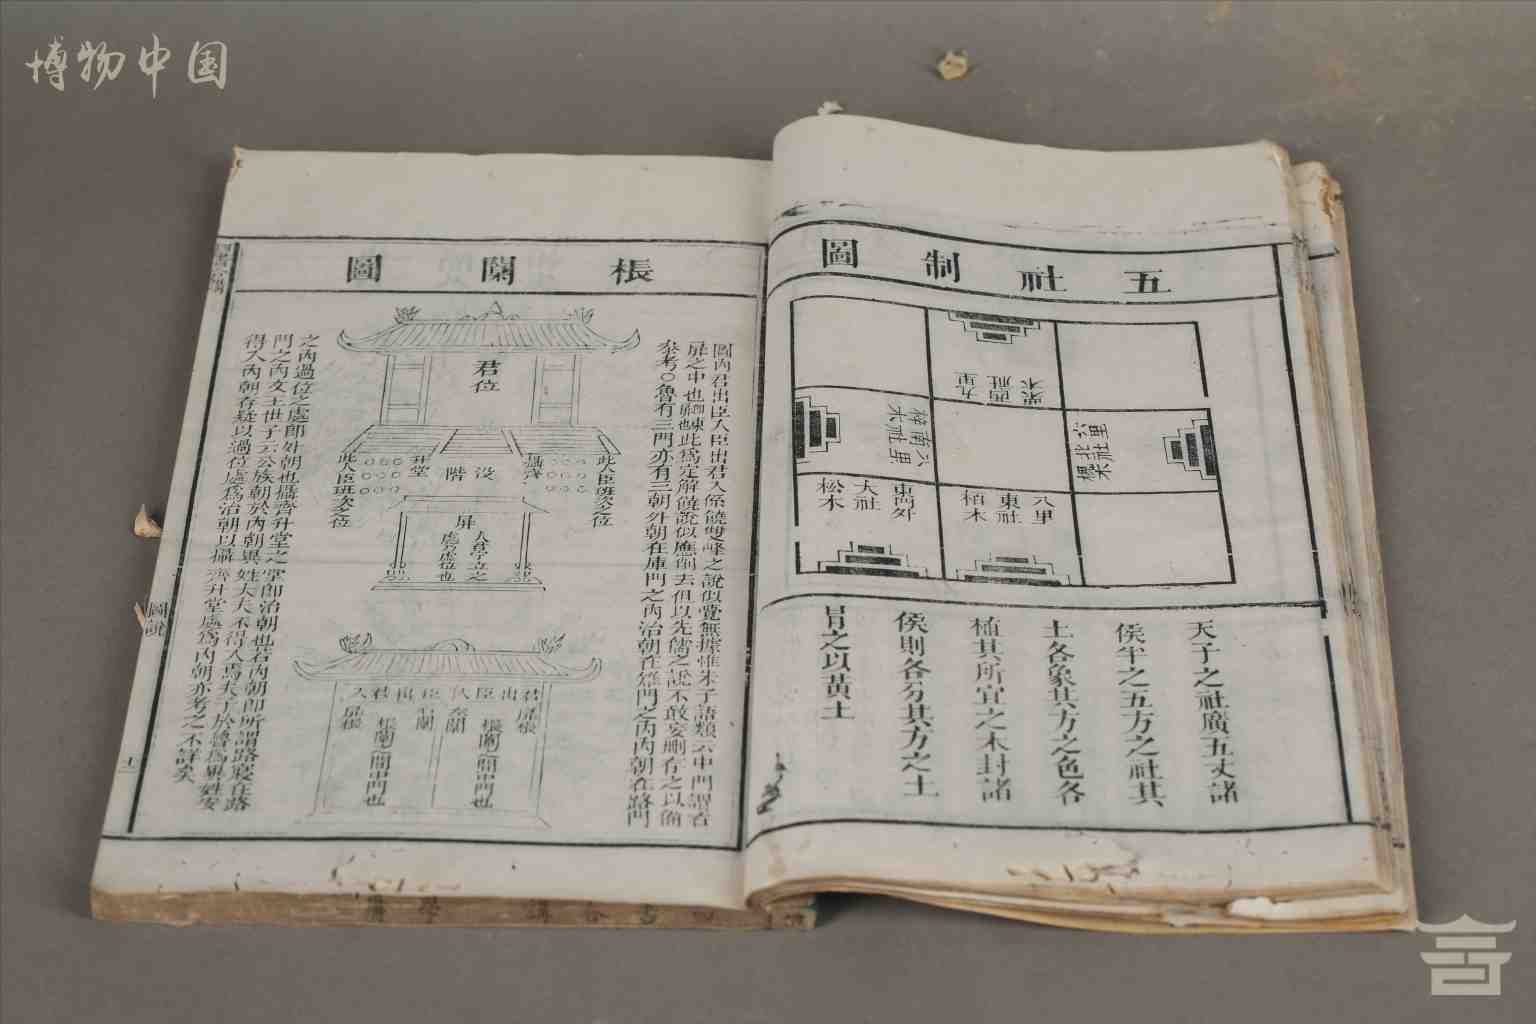 博物中国
五社制圖
九里
西社
栗木
六里
南社
梓木
六里
北社
槐木
八里
東社
栢木
東門外
大社
松木
天子之社廣五丈諸
侯半之五方之社其
土各象其方之色各
植其所宜之木封諸
侯則各分其方之土
冐之以黃土
棖闑圖
圖內君出臣入臣出君入係饒雙峰之說似覺無據惟朱子語類云中門謂者
屏之中也
此爲定解饒說似應削去但以先儒之說不敢妄刪存之以備
參考○魯有三門亦有三朝外朝在庫門之內治朝在雉門之內內朝在路門
之內過位之處卽外朝也攝齊升堂之堂卽治朝也若內朝卽所謂路寢在路
門之內文王世子云公族朝於內朝異姓大夫不得入焉夫子於魯爲異姓安
得入內朝存疑以過位處爲治朝以攝齊升堂處爲內朝亦考之不詳矣
君位
此人臣班次之位
攝齊
没階
升堂
此人臣班次之位
屏
人君宁立之
處爲虛位也
君出臣入
臣出君入
屏棖
棖闑之間中門也
東闑
右闑
棖闑之間中門也
屏棖
圖說